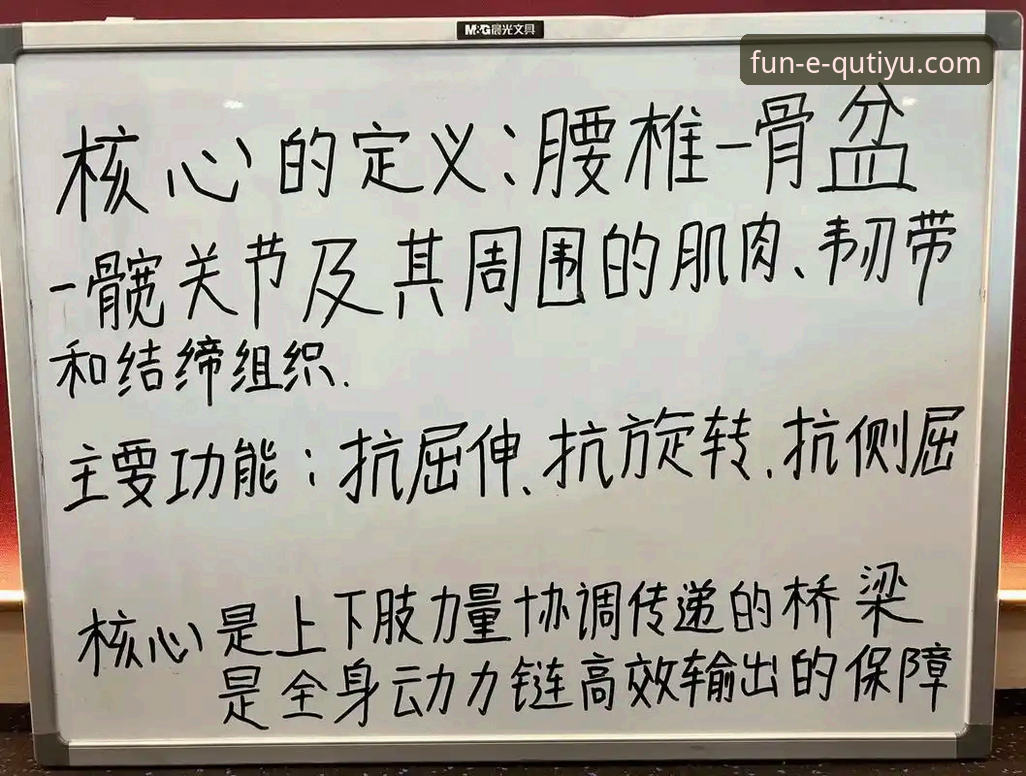 M&G晨光文具
fun-e-qutiyu.com
核心的定义:腰椎-骨盆
-髋关节及其周围的肌肉、韧带
和结缔组织.
主要功能:抗屈伸、抗旋转、抗侧屈
核心是上下肢力量协调传递的桥梁
是全身动力链高效输出的保障